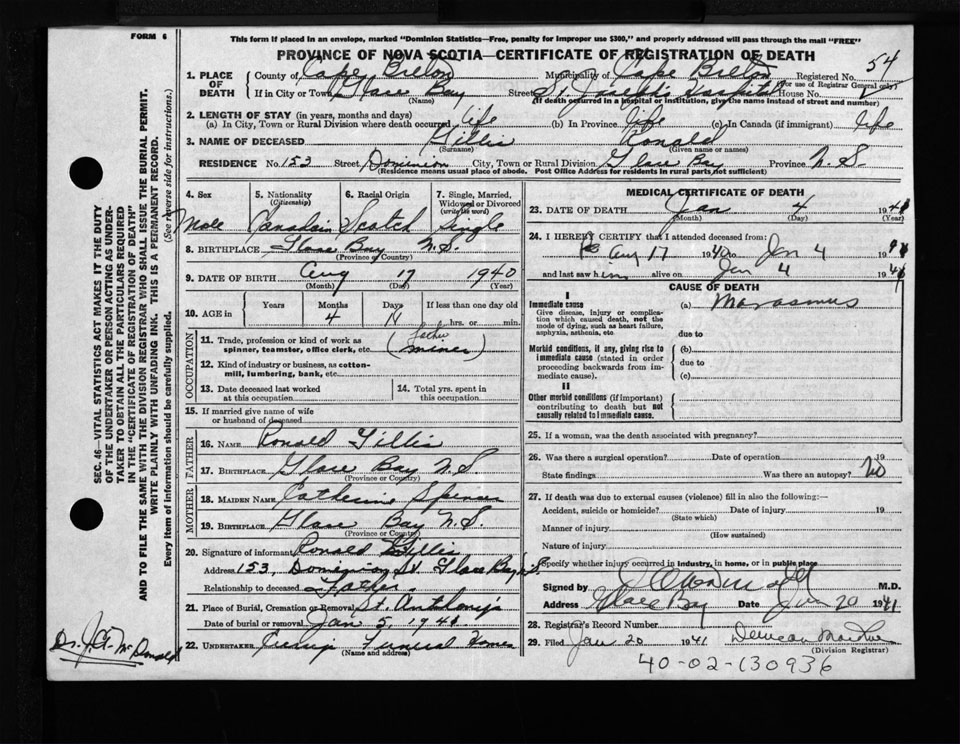 FORM 6
This form if placed in an envelope, marked "Dominion Statistics—Free, penalty for improper use $300," and properly addressed will pass through the mail "FREE"
PROVINCE OF NOVA SCOTIA—CERTIFICATE OF REGISTRATION OF DEATH
54
1. PLACE OF DEATH
County of Cape Breton Municipality of Cape Breton Registered No.
(For use of Registrar General only)
If in City or Town Glace Bay Street St. Joseph's Hospital House No.
(Name) (If death occurred in a hospital or institution, give the name instead of street and number)
2. LENGTH OF STAY (in years, months and days)
(a) In City, Town or Rural Division where death occurred life (b) in Province life (c) In Canada (if immigrant) life
3. NAME OF DECEASED Gillis Ronald
(Surname) (Given name or names)
RESIDENCE No. 153 Street Dominion City, Town or Rural Division Glace Bay Province N. S.
(Residence means usual place of abode. Post Office Address for residents in rural parts not sufficient)
4. Sex 5. Nationality (Citizenship) 6. Racial Origin 7. Single, Married, Widowed or Divorced (write the word)
Male Canadain Scotch Single
8. BIRTHPLACE Glace Bay N. S.
(Province or Country)
9. DATE OF BIRTH Aug 17 1940
(Month) (Day) (Year)
10. AGE in Years Months Days If less than one day old
4 hrs. or min.
OCCUPATION
11. Trade, profession or kind of work as spinner, teamster, office clerk, etc. (father miner)
12. Kind of industry or business, as cotton-mill, lumbering, bank, etc.
13. Date deceased last worked at this occupation
14. Total yrs. spent in this occupation
15. If married give name of wife or husband of deceased
FATHER
16. NAME Ronald Gillis
17. BIRTHPLACE Glace Bay N. S.
(Province or Country)
MOTHER
18. MAIDEN NAME Catherine Spencer
19. BIRTHPLACE Glace Bay N. S.
(Province or Country)
20. Signature of informant Ronald Gillis
Address 153, Dominion St Glace Bay N.S.
Relationship to deceased Father.
21. Place of Burial, Cremation or Removal St. Anthony's
Date of burial or removal Jan 5, 1941
22. UNDERTAKER Funeral Home
(Name and address)
MEDICAL CERTIFICATE OF DEATH
23. DATE OF DEATH Jan 4 1941
(Month) (Day) (Year)
24. I HEREBY CERTIFY that I attended deceased from:
Aug 17 1940 to Jan 4 1941
and last saw him alive on Jan 4 1941
CAUSE OF DEATH
I
Immediate cause (a) Marasmus
Give disease, injury or complication which caused death, not the mode of dying, such as heart failure, asphyxia, asthenia, etc.
due to
Morbid conditions, if any, giving rise to immediate cause (stated in order proceeding backwards from immediate cause).
(b)
due to
(c)
II
Other morbid conditions (if important) contributing to death but not causally related to immediate cause.
25. If a woman, was the death associated with pregnancy?
26. Was there a surgical operation? Date of operation 19
State findings Was there an autopsy? No
27. If death was due to external causes (violence) fill in also the following:
Accident, suicide or homicide? Date of injury 19
(State which)
Manner of injury
(How sustained)
Nature of injury
Specify whether injury occurred in industry, in home, or in public place
Signed by M.D.
Address Glace Bay Date Jan 20 1941
28. Registrar's Record Number
29. Filed Jan 20 1941 Duncan
(Division Registrar)
40-02-130936
SEC. 46—VITAL STATISTICS ACT MAKES IT THE DUTY
OF THE UNDERTAKER OR PERSON ACTING AS UNDERTAKER
TO OBTAIN ALL THE PARTICULARS REQUIRED
IN THE "CERTIFICATE OF REGISTRATION OF DEATH"
AND TO FILE THE SAME WITH THE DIVISION REGISTRAR WHO SHALL ISSUE THE BURIAL PERMIT.
WRITE PLAINLY WITH UNFADING INK. THIS IS A PERMANENT RECORD.
Every item of information should be carefully supplied. (See reverse side for instructions.)
Dr. J.A. McDonald